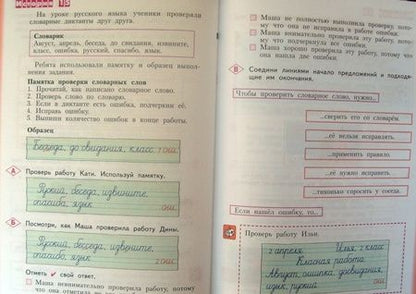 15
На уроке русского языка ученики проверяли
словарные диктанты друг друга.
Словарик
Август, апрель, беседа, до свидания, извините,
класс, ошибка, русский, спасибо, язык
Ребята использовали памятку и образец выпол-
нения задания.
Памятка проверки словарных слов
1. Прочитай, как написано словарное слово.
2. Проверь слово по словарю.
3. Если в диктанте есть ошибка, подчеркни её.
4. Исправь ошибку.
5. Выпиши количество ошибок в конце работы.
Образец
Беседа, до свидания, класс 1 ош.
А
Проверь работу Кати. Используй памятку.
Руский, беседа, извените,
спасибо, язык ош.
Б
Посмотри, как Маша проверила работу Дины.
Руский, беседа, извините,
спасибо, язык 2 ош.
Отметь ✔ свой ответ.
Маша внимательно проверила работу, потому
что она отметила
Маша не полностью выполнила проверку, пото-
му что она не исправила в работе ошибки.
Маша внимательно проверила работу, потому
что подчеркнула все ошибки.
Маша хорошо проверила эту работу, потому что
она нашла две ошибки.
В
Соедини линиями начало предложений и подходя-
щие им окончания.
Чтобы проверить словарное слово, нужно..
...сверить его со словарём.
...её нельзя исправлять.
...применить правило
...её нужно исправить.
...тихонько спросить у соседа.
Если нашёл ошибку, то...
Проверь работу Ильи.
2 апреля. Илья, 2 класс
Класная работа
Август, ошипка, досвидания,
изык, руский ош.